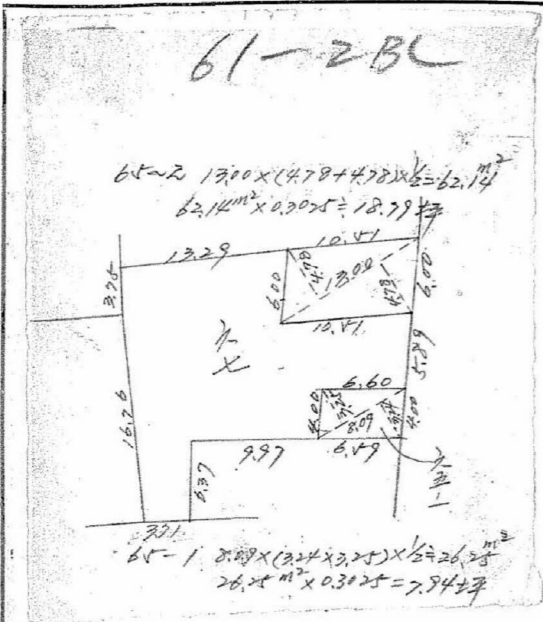 61-2BL
65~2 13.00×(4.78+4.78)×½=62.14m²
62.14m²×0.3025=18.79坪
13.29
10.51
3.75
6.00
4.78
13.00
4.78
6.00
10.51
6.85
6.60
4.00
3.25
8.09
4.00
16.76
9.97
6.59
6.37
3.21
65-1 8.09×(3.24×3.25)×½=26.25m²
26.25m²×0.3025=7.94坪